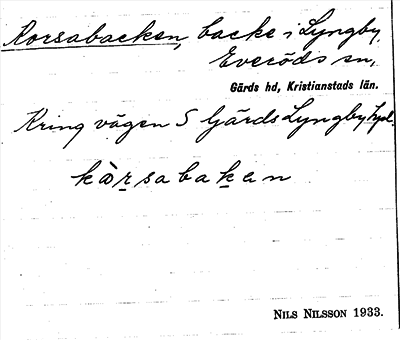 Korsabacken, backe i Lyngby,
Everöds sn,
Gärds hd, Kristianstads län.
Kring vägen S Gärds Lyngby hpl.
kòr̲sabak̲en
NILS NILSSON 1933.